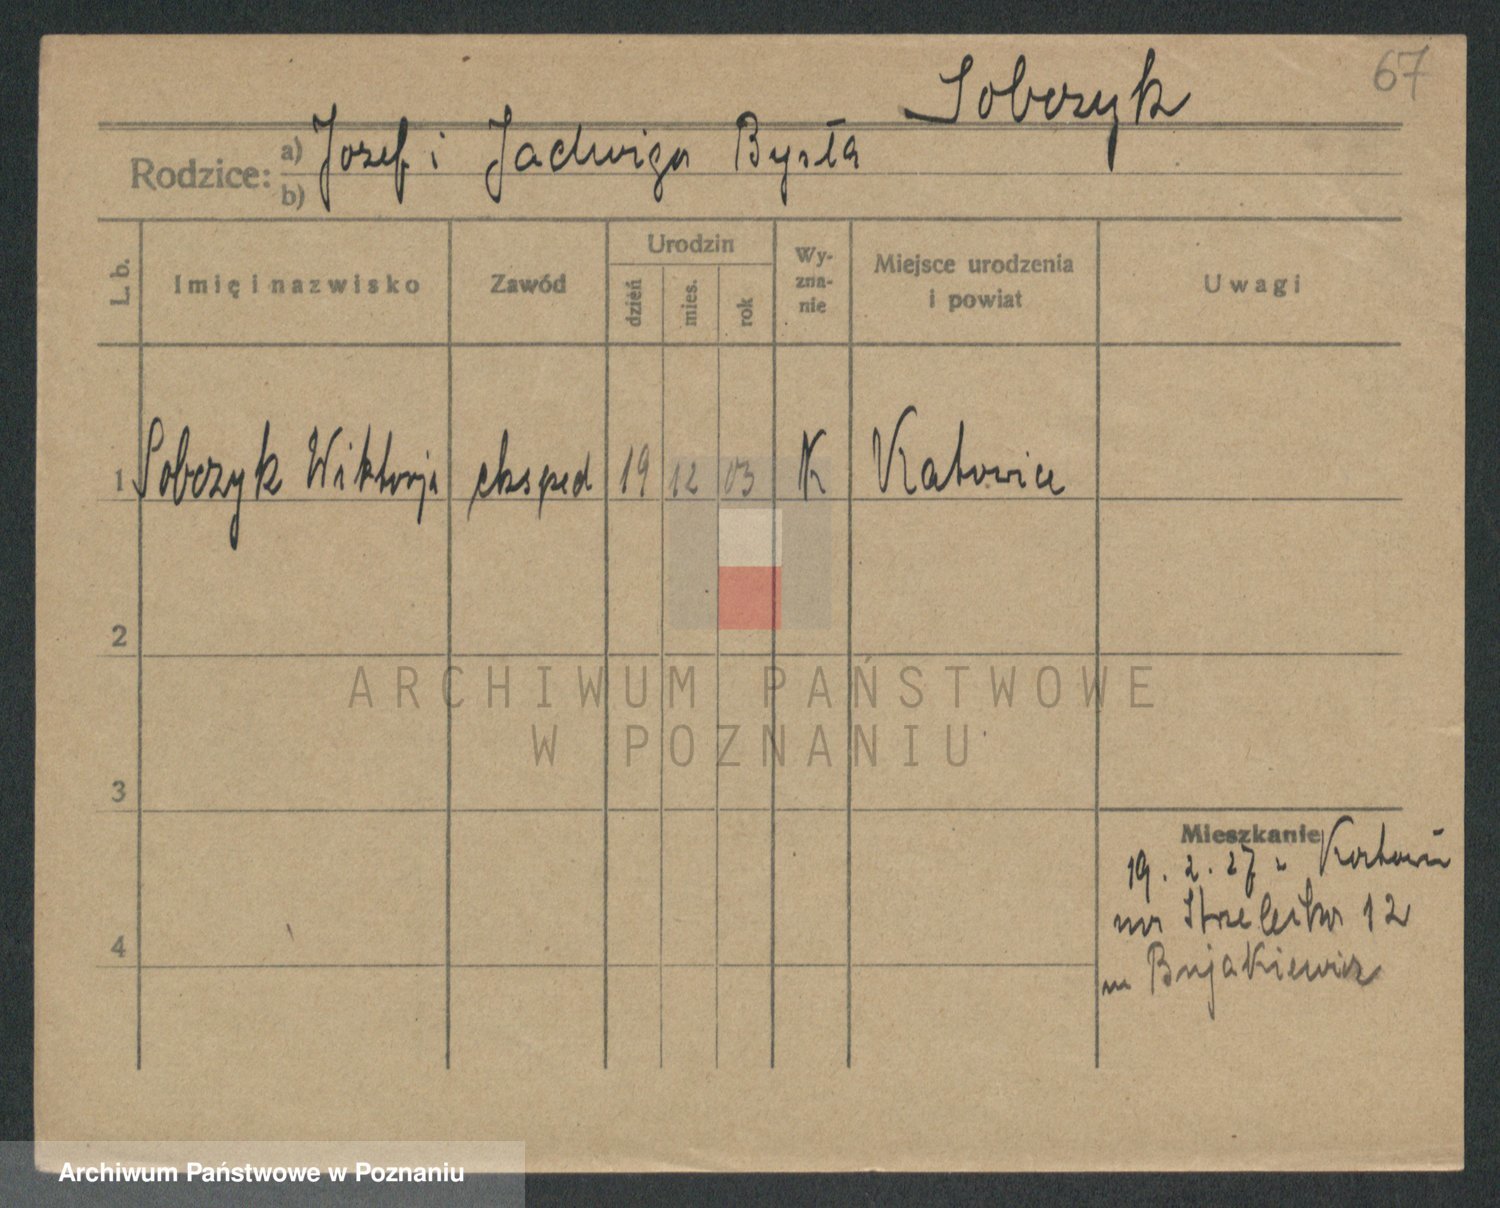 67
Sobczyk
Rodzice: a) Jozef i Jadwiga Bysła
b)
L. b. Imię i nazwisko Zawód Urodzin dzień mies. rok Wy-zna-nie Miejsce urodzenia i powiat Uwagi
1 Sobczyk Wiktorja eksped 19 12 03 K Katowice
2
3
4
Mieszkanie
19. 2. 27 z
na Strzelecka 12
Bujakiewicz
ARCHIWUM PAŃSTWOWE
W POZNANIU
Archiwum Państwowe w Poznaniu